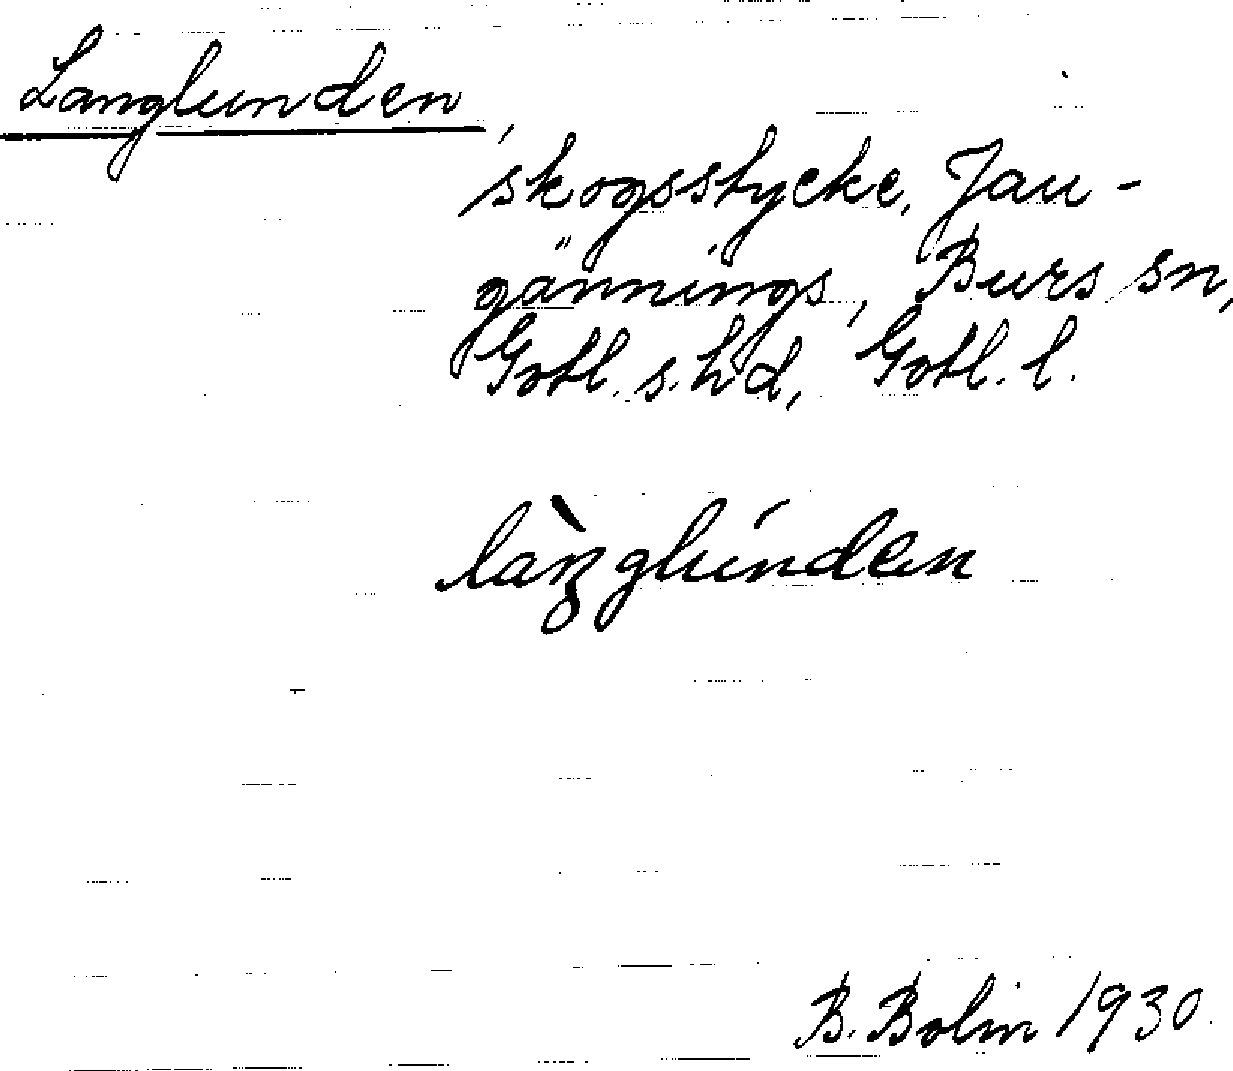 Langlunden,
skogsstycke, Jau-
gännings, Burs sn,
Gotl. s. hd, Gotl. l.
làŋglúnden
B. Bolin 1930.